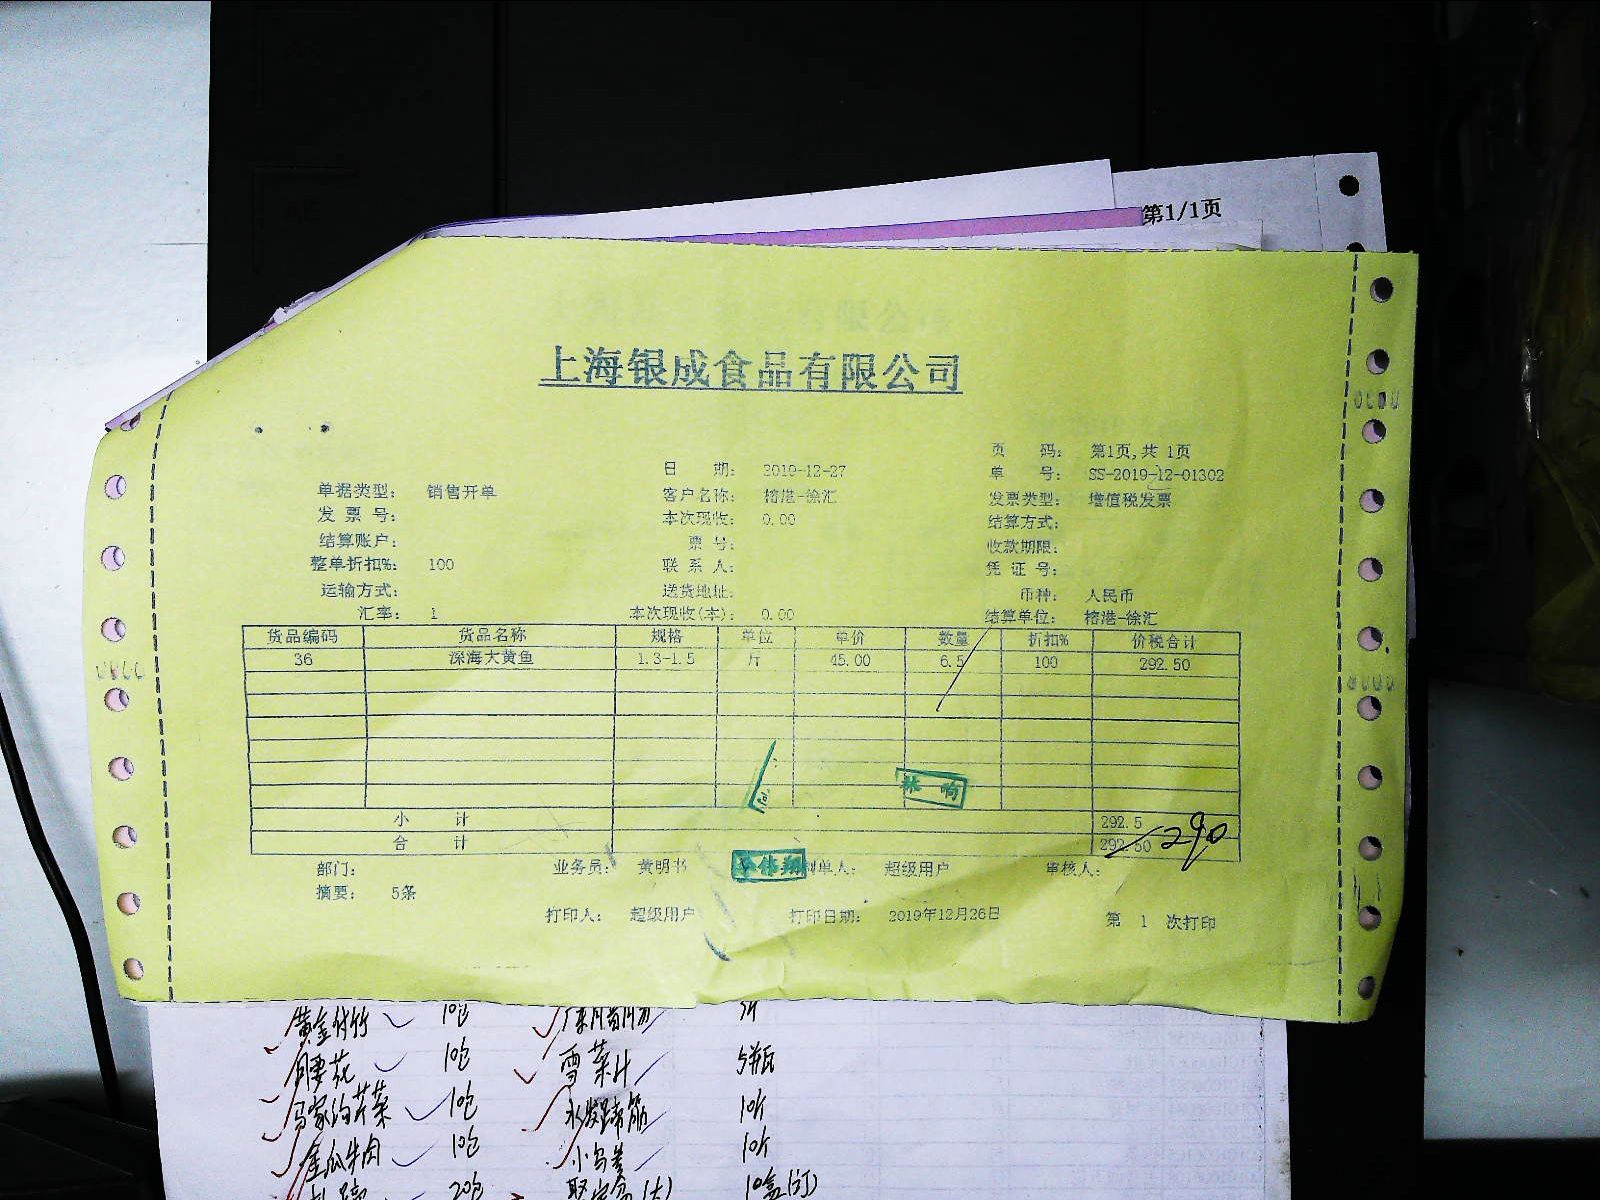 第1/1页
上海银成食品有限公司
页 码: 第1页,共 1页
日 期: 2019-12-27 单 号: SS-2019-12-01302
单据类型: 销售开单 客户名称: 榕港-徐汇 发票类型: 增值税发票
发 票 号: 本次现收: 0.00 结算方式:
结算账户: 票 号: 收款期限:
整单折扣%: 100 联 系 人: 凭 证 号:
运输方式: 送货地址: 币种: 人民币
汇率: 1 本次现收(本): 0.00 结算单位: 榕港-徐汇
货品编码 货品名称 规格 单位 单价 数量 折扣% 价税合计
36 深海大黄鱼 1.3-1.5 斤 45.00 6.5 100 292.50
小 计 292.5
合 计 292.50 290
部门: 业务员: 黄明书 制单人: 超级用户 审核人:
摘要: 5条
打印人: 超级用户 打印日期: 2019年12月26日 第 1 次打印
黄金付竹 10包
10包 雪菜汁 5瓶
马家沟芹菜 10包 水发蹄筋 10斤
金瓜牛肉 10包 小乌参 10斤
20包